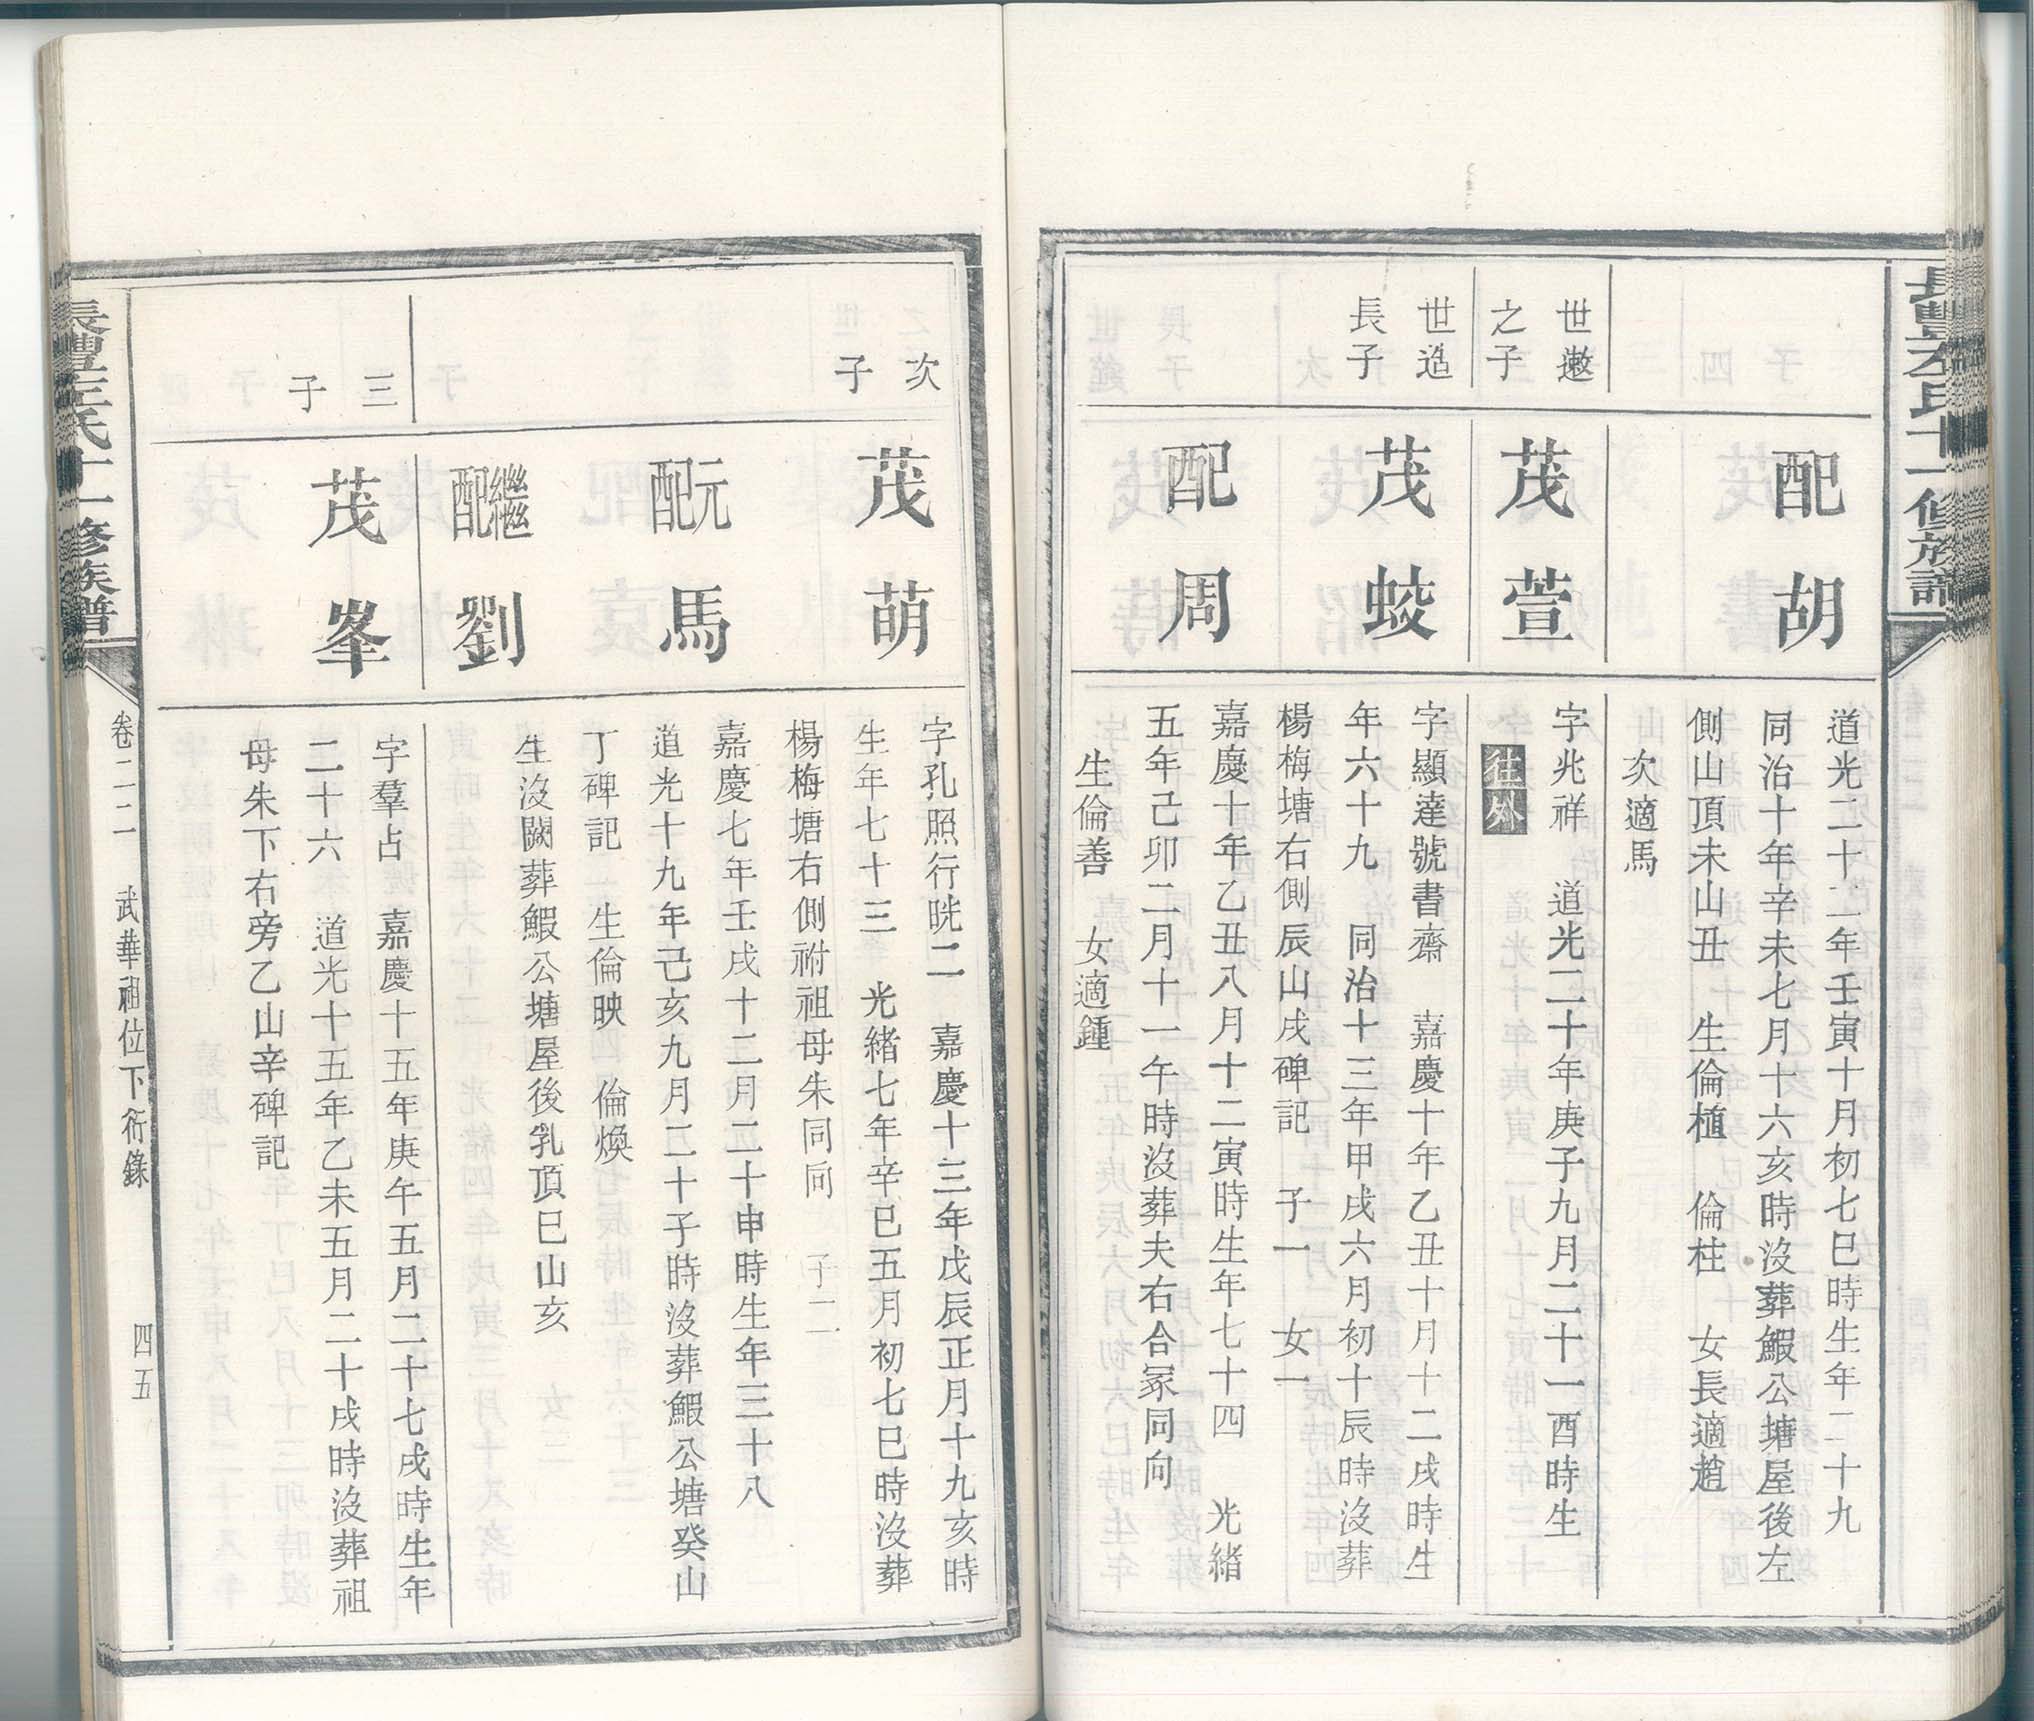 配胡
道光二十二年壬寅十月初七巳時生年二十九
同治十年辛未七月十六亥時沒葬鰕公塘屋後左
側山頂未山丑　生倫植　倫柱　女長適趙
次適馬
世邀
之子
茂萱
字兆祥　道光二十年庚子九月二十一酉時生
往外
世造
長子
茂蛟
字顯達號書齋　嘉慶十年乙丑十月十二戌時生
年六十九　同治十三年甲戌六月初十辰時沒葬
楊梅塘右側辰山戌碑記　子一　女一
配周
嘉慶十年乙丑八月十二寅時生年七十四　光緒
五年己卯二月十一午時沒葬夫右合冢同向
生倫善　女適鍾
次
子
茂萌
字孔照行晄二　嘉慶十三年戊辰正月十九亥時
生年七十三　光緒七年辛巳五月初七巳時沒葬
楊梅塘右側祔祖母朱同向　子二
元配馬
嘉慶七年壬戌十二月二十申時生年三十八
道光十九年己亥九月二十子時沒葬鰕公塘癸山
丁碑記　生倫映　倫煥
繼配劉
生沒闕葬鰕公塘屋後乳頂巳山亥
三
子
茂峯
字羣占　嘉慶十五年庚午五月二十七戌時生年
二十六　道光十五年乙未五月二十戌時沒葬祖
母朱下右旁乙山辛碑記
十一修族譜
卷二二　武華祖位下衍錄　四五